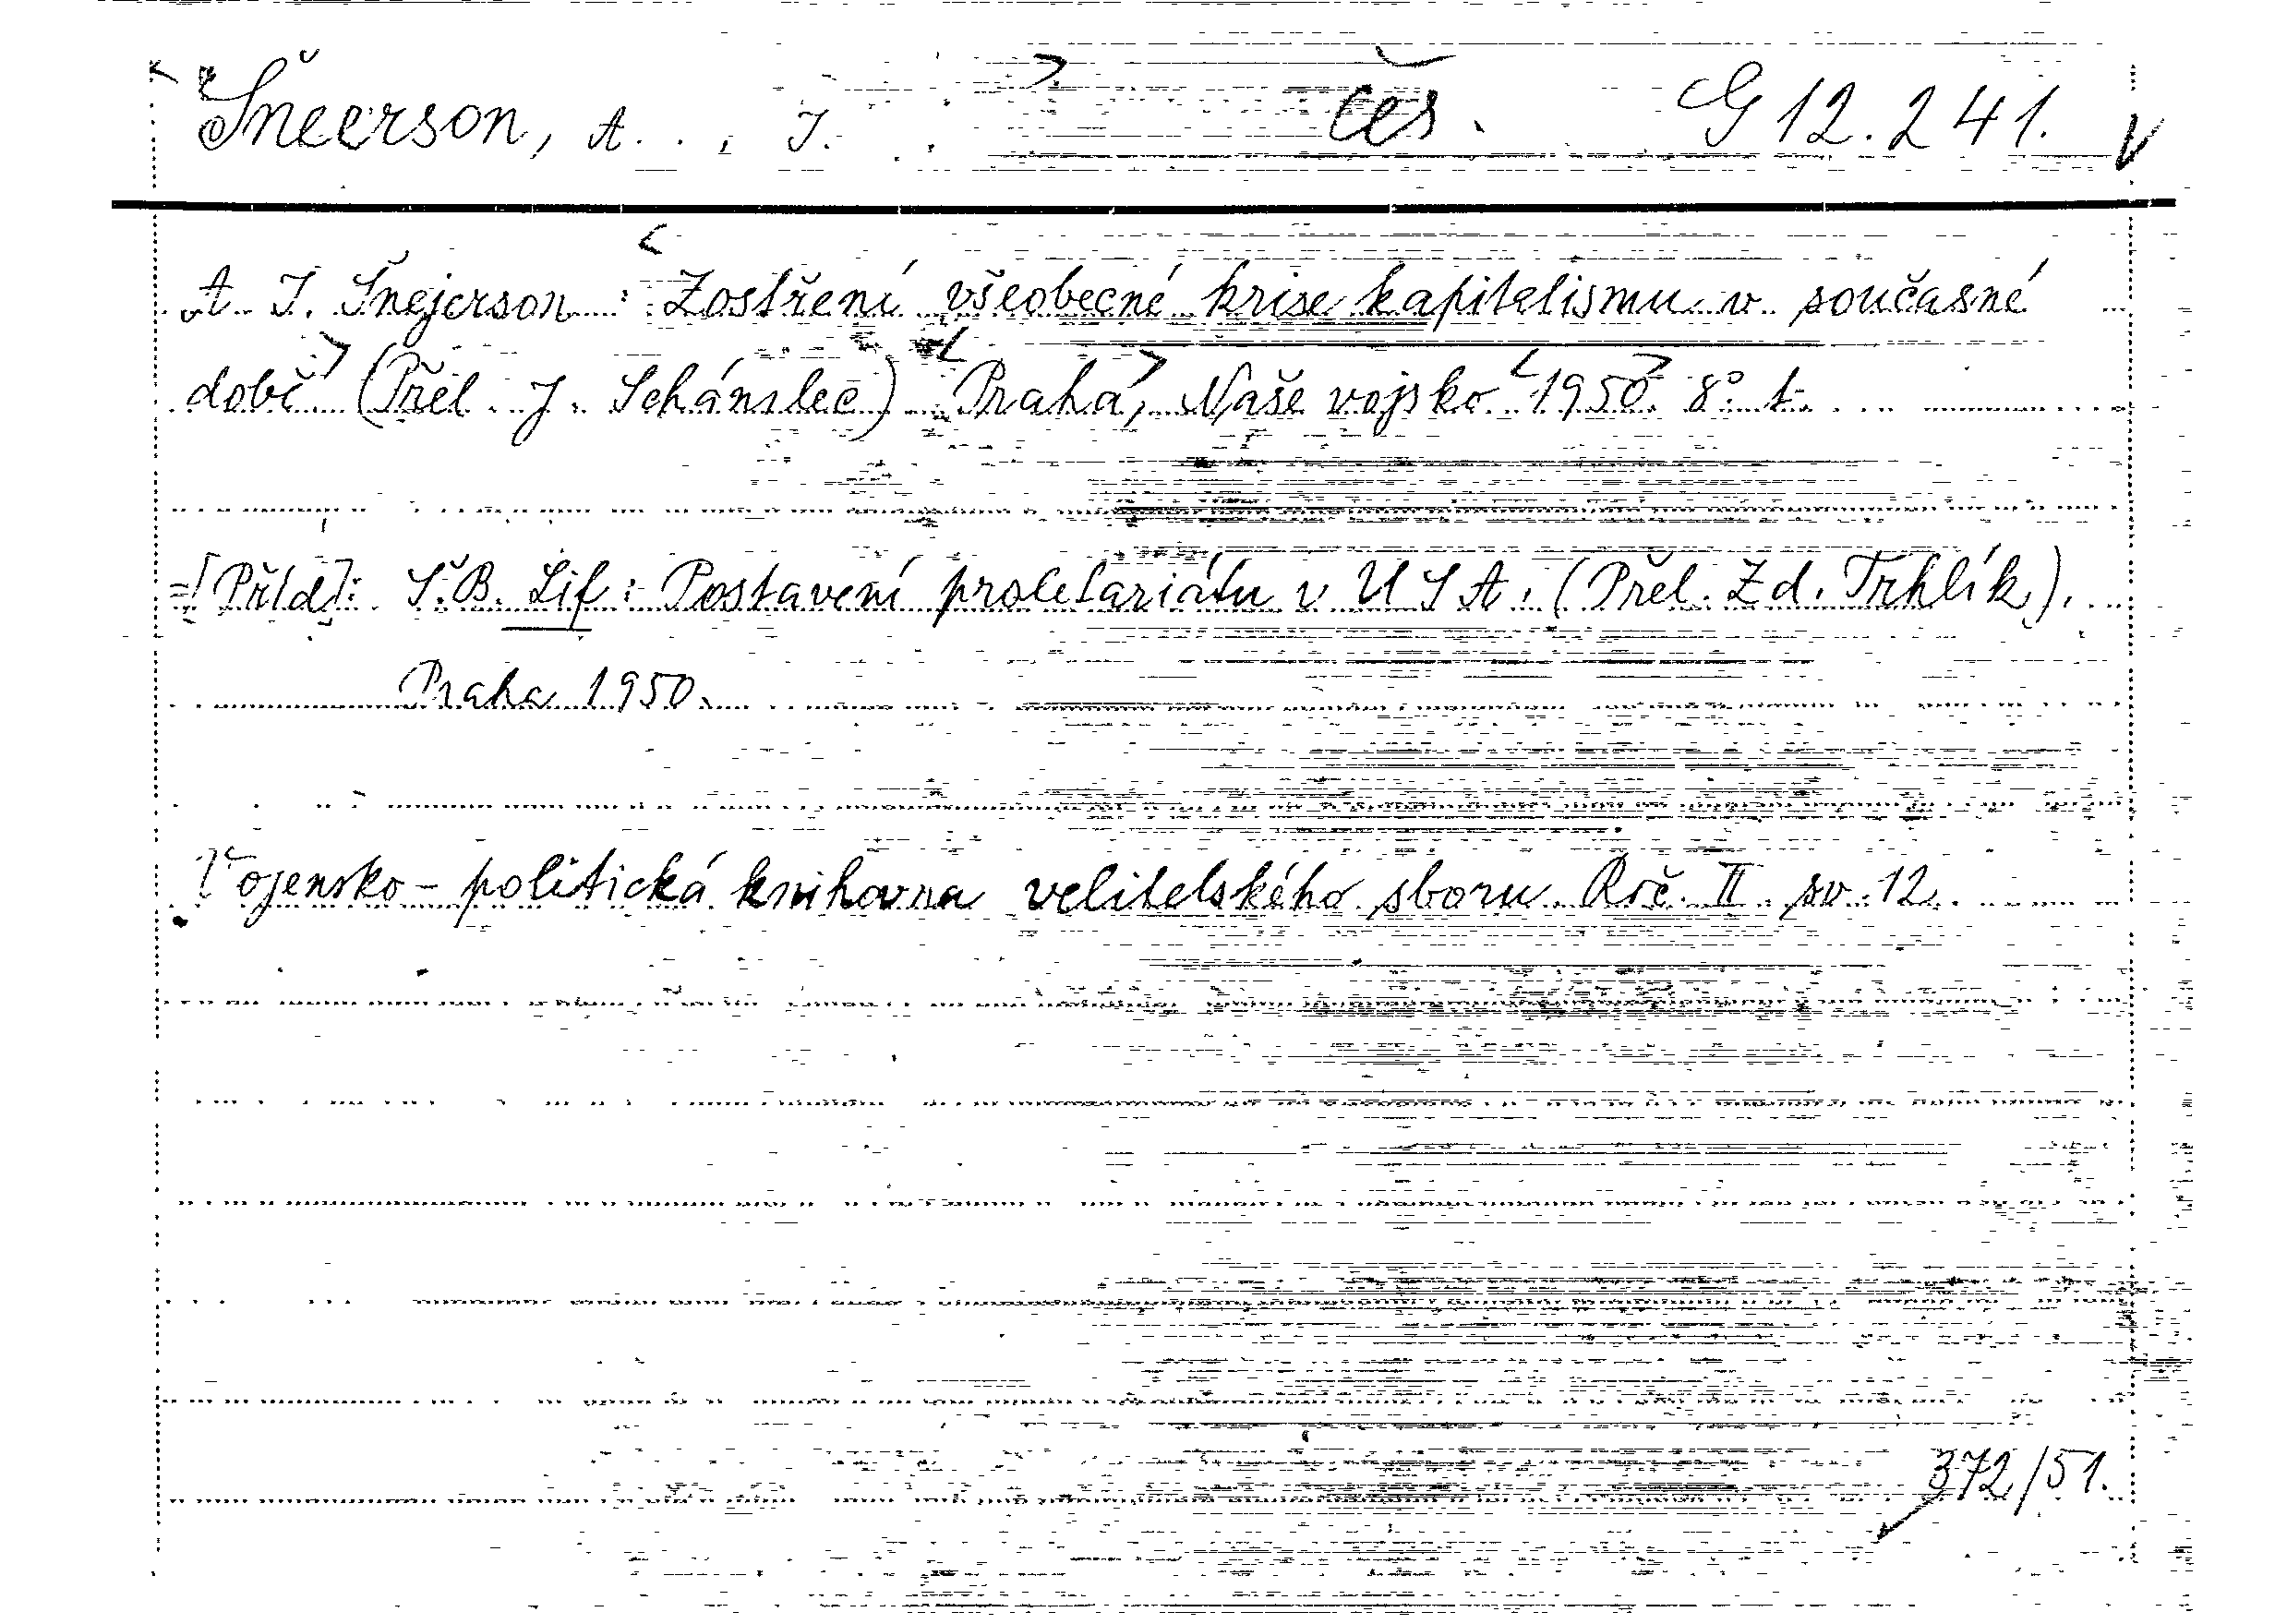 Šneerson, A. , J. čes. G 12.241.
A. J. Šnejerson : Zostření všeobecné krise kapitalismu v současné
době (Přel. J. Schánilec) Praha, Naše vojsko 1950. 8° t.
=[Příd]: Š. B. Lif : Postavení proletariátu v USA. (Přel. Zd. Trhlík).
Praha 1950.
Vojensko-politická knihovna velitelského sboru Roč. II sv. 12.
372/51.